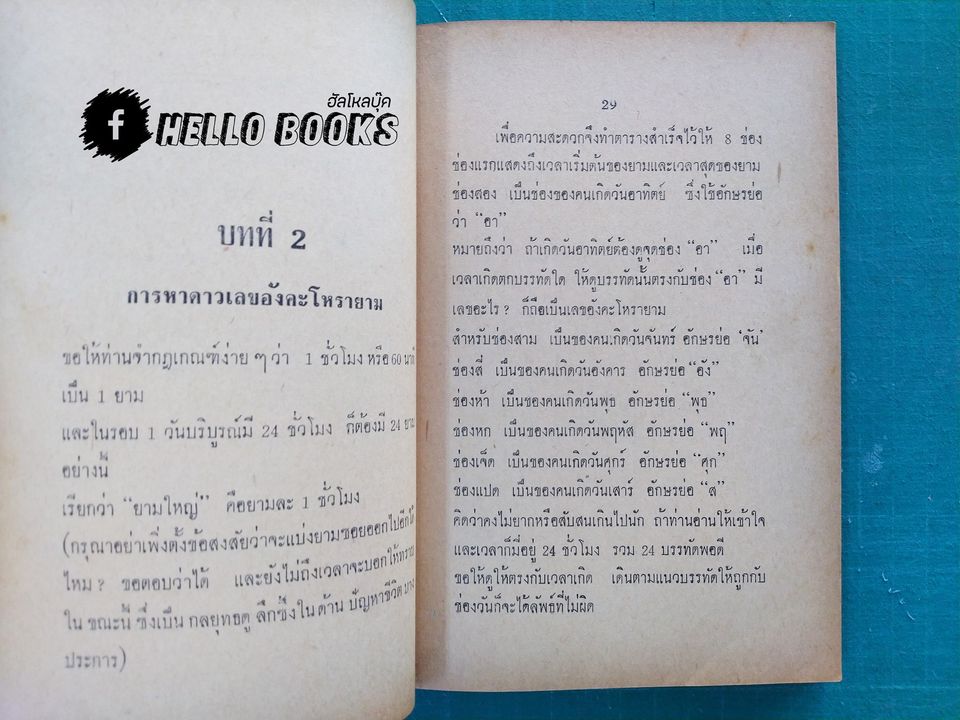 ฮัลโหลบุ๊ค
f HELLO BOOKS
บทที่ 2
การหาดาวเลขอังคะโหรายาม
ขอให้ท่านจำกฎเกณฑ์ง่าย ๆ ว่า 1 ชั่วโมง หรือ 60 นาที
เป็น 1 ยาม
และในรอบ 1 วันบริบูรณ์มี 24 ชั่วโมง ก็ต้องมี 24 ยาม
อย่างนี้
เรียกว่า "ยามใหญ่" คือยามละ 1 ชั่วโมง
(กรุณาอย่าเพิ่งตั้งข้อสงสัยว่าจะแบ่งยามซอยออกไปอีกได้
ไหม? ขอตอบว่าได้ และยังไม่ถึงเวลาจะบอกให้ทราบ
ใน ขณะนี้ ซึ่งเป็น กลยุทธดู ลึกซึ้ง ใน ด้าน ปัญหาชีวิต บาง
ประการ)
29
เพื่อความสะดวกจึงทำตารางสำเร็จไว้ให้ 8 ช่อง
ช่องแรกแสดงถึงเวลาเริ่มต้นของยามและเวลาสุดของยาม
ช่องสอง เป็นช่องของคนเกิดวันอาทิตย์ ซึ่งใช้อักษรย่อ
ว่า "อา"
หมายถึงว่า ถ้าเกิดวันอาทิตย์ต้องดูจุดช่อง "อา" เมื่อ
เวลาเกิดตกบรรทัดใด ให้ดูบรรทัดนั้นตรงกับช่อง "อา" มี
เลขอะไร? ก็ถือเป็นเลขอังคะโหรายาม
สำหรับช่องสาม เป็นของคนเกิดวันจันทร์ อักษรย่อ 'จัน'
ช่องสี่ เป็นของคนเกิดวันอังคาร อักษรย่อ "อัง"
ช่องห้า เป็นของคนเกิดวันพุธ อักษรย่อ "พุธ"
ช่องหก เป็นของคนเกิดวันพฤหัส อักษรย่อ "พฤ"
ช่องเจ็ด เป็นของคนเกิดวันศุกร์ อักษรย่อ "ศุก"
ช่องแปด เป็นของคนเกิดวันเสาร์ อักษรย่อ "ส"
คิดว่าคงไม่ยากหรือสับสนเกินไปนัก ถ้าท่านอ่านให้เข้าใจ
และเวลาก็มีอยู่ 24 ชั่วโมง รวม 24 บรรทัดพอดี
ขอให้ดูให้ตรงกับเวลาเกิด เดินตามแนวบรรทัดให้ถูกกับ
ช่องวันก็จะได้ลัพธ์ที่ไม่ผิด